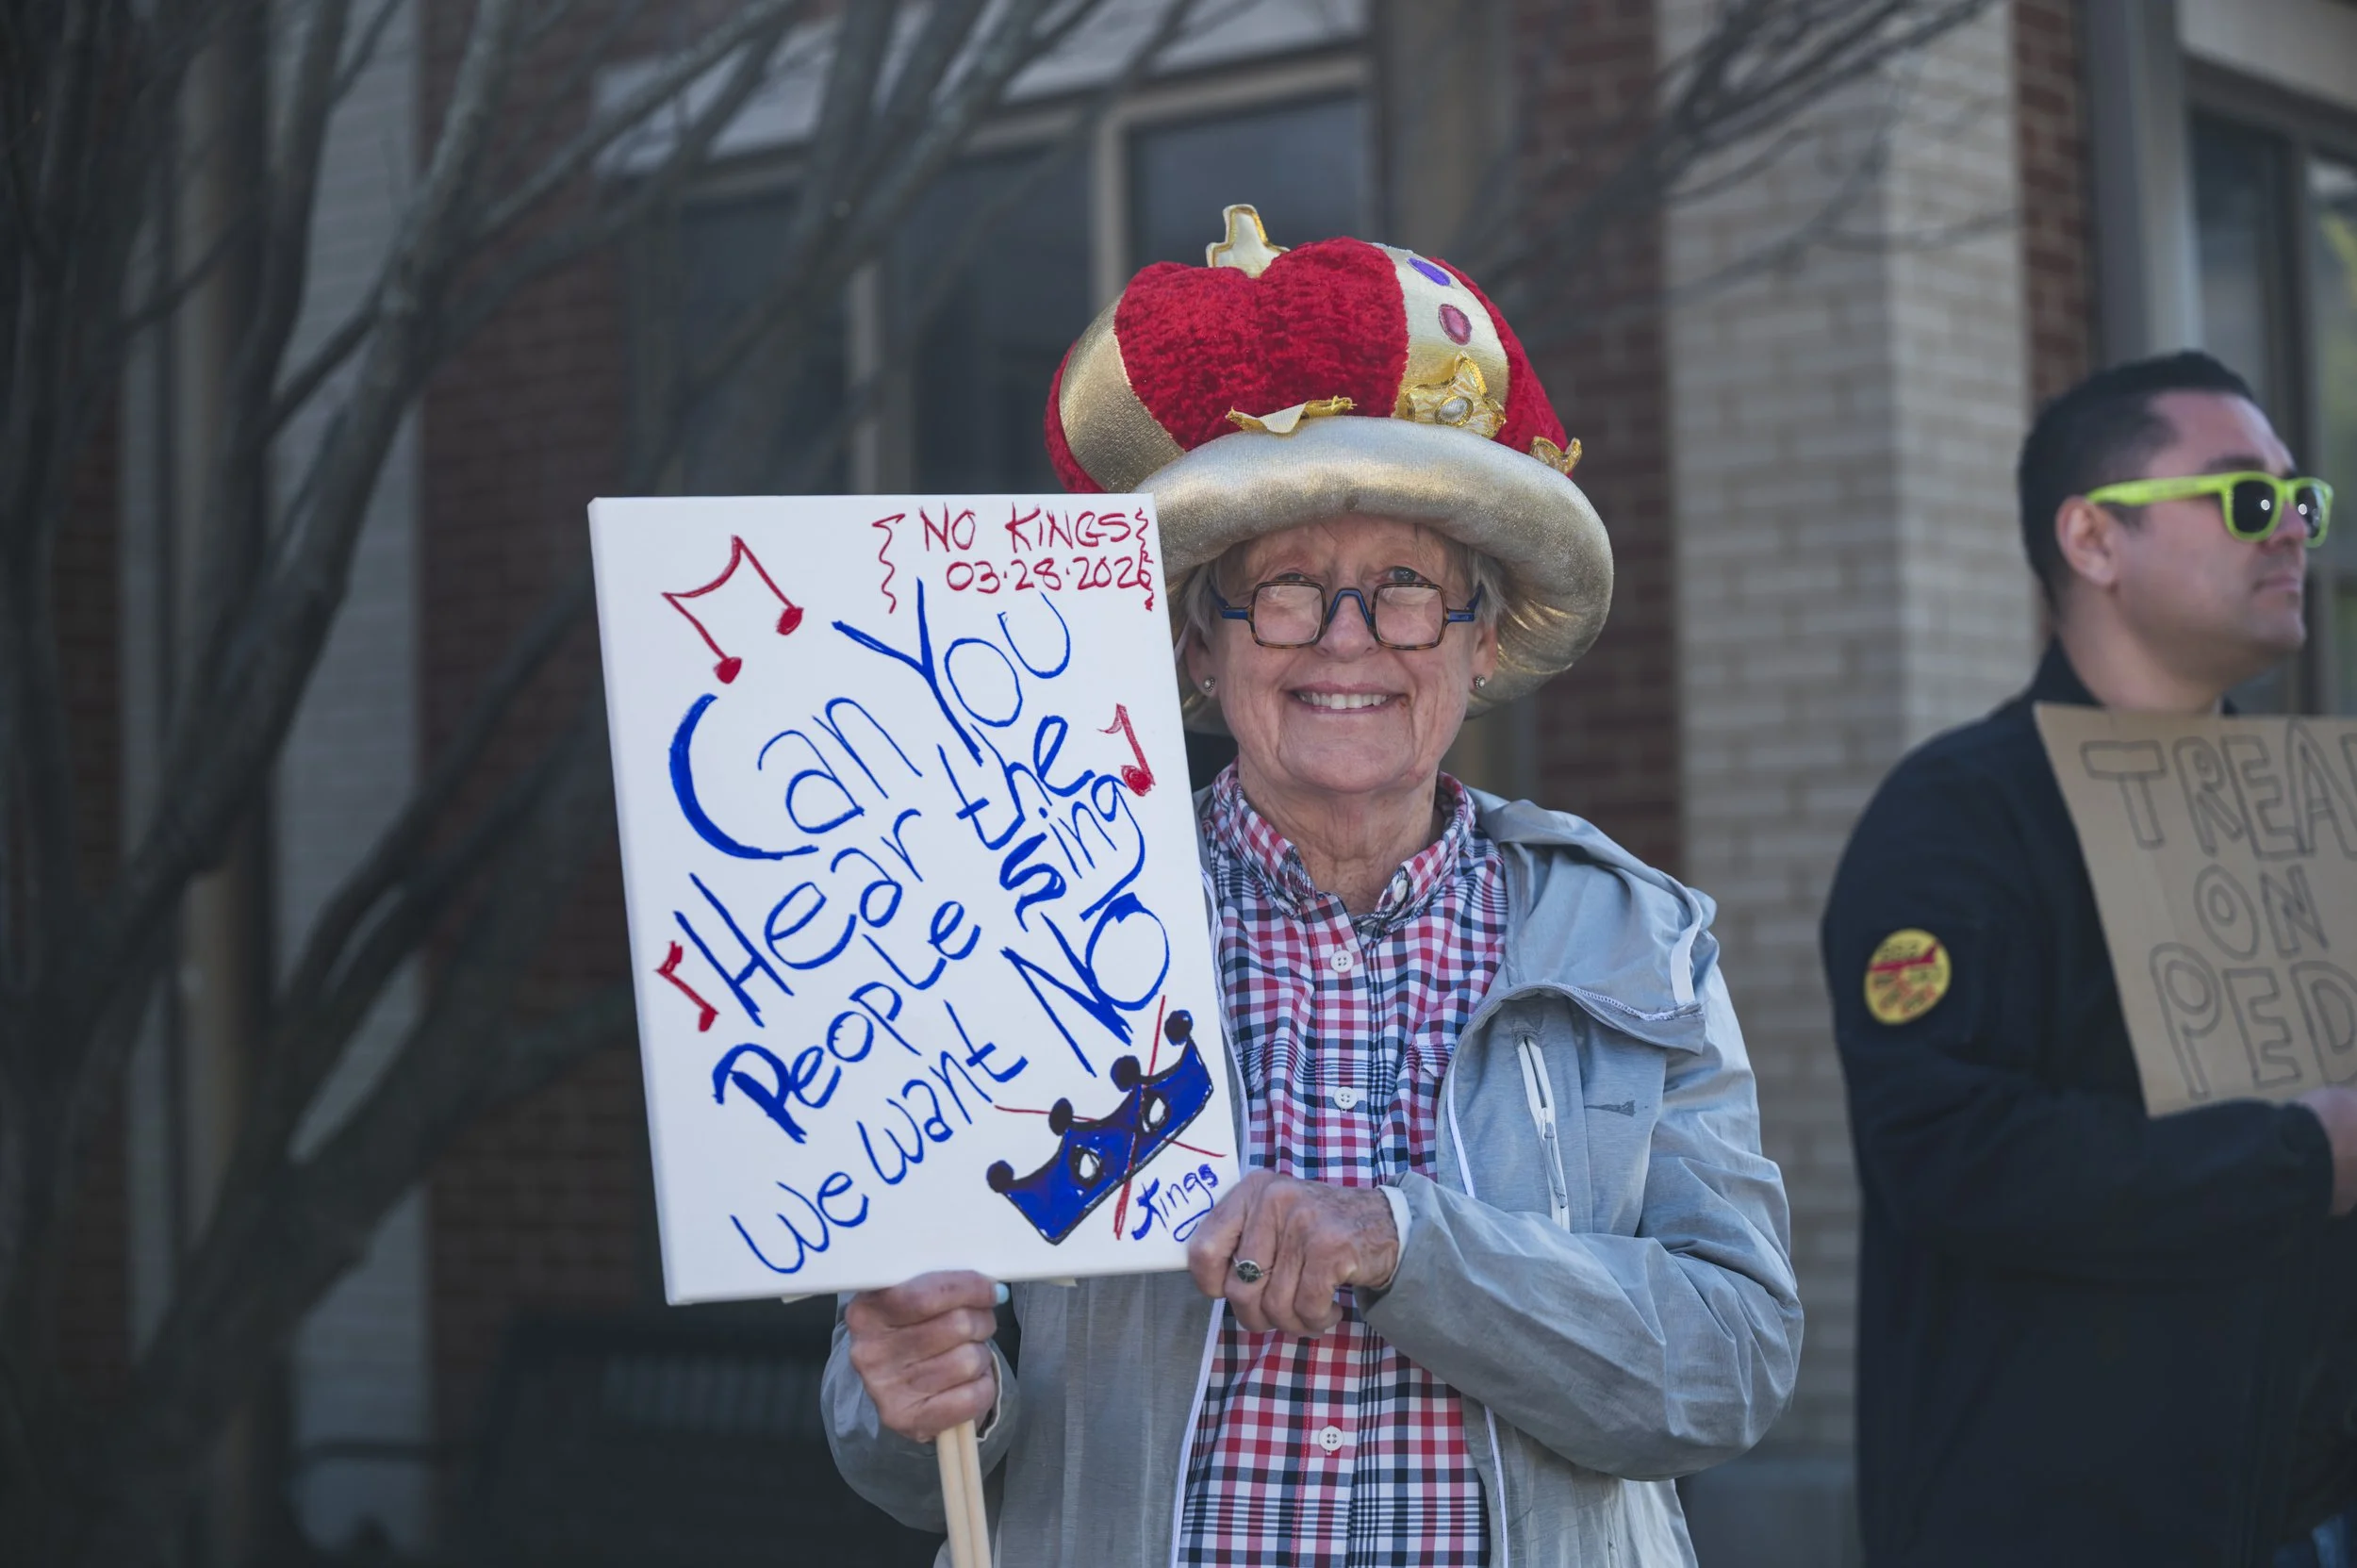 NO KINGS
03.28.2026
Can You
Hear the
People Sing
We Want NO
Kings
TREA
ON
PED